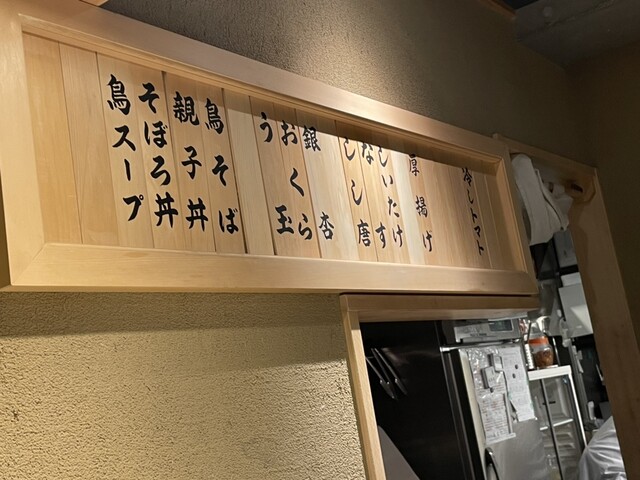 冷しトマト
厚揚げ
しいたけ
なす
しし唐
銀杏
おくら
う玉
鳥そば
親子丼
そぼろ丼
鳥スープ